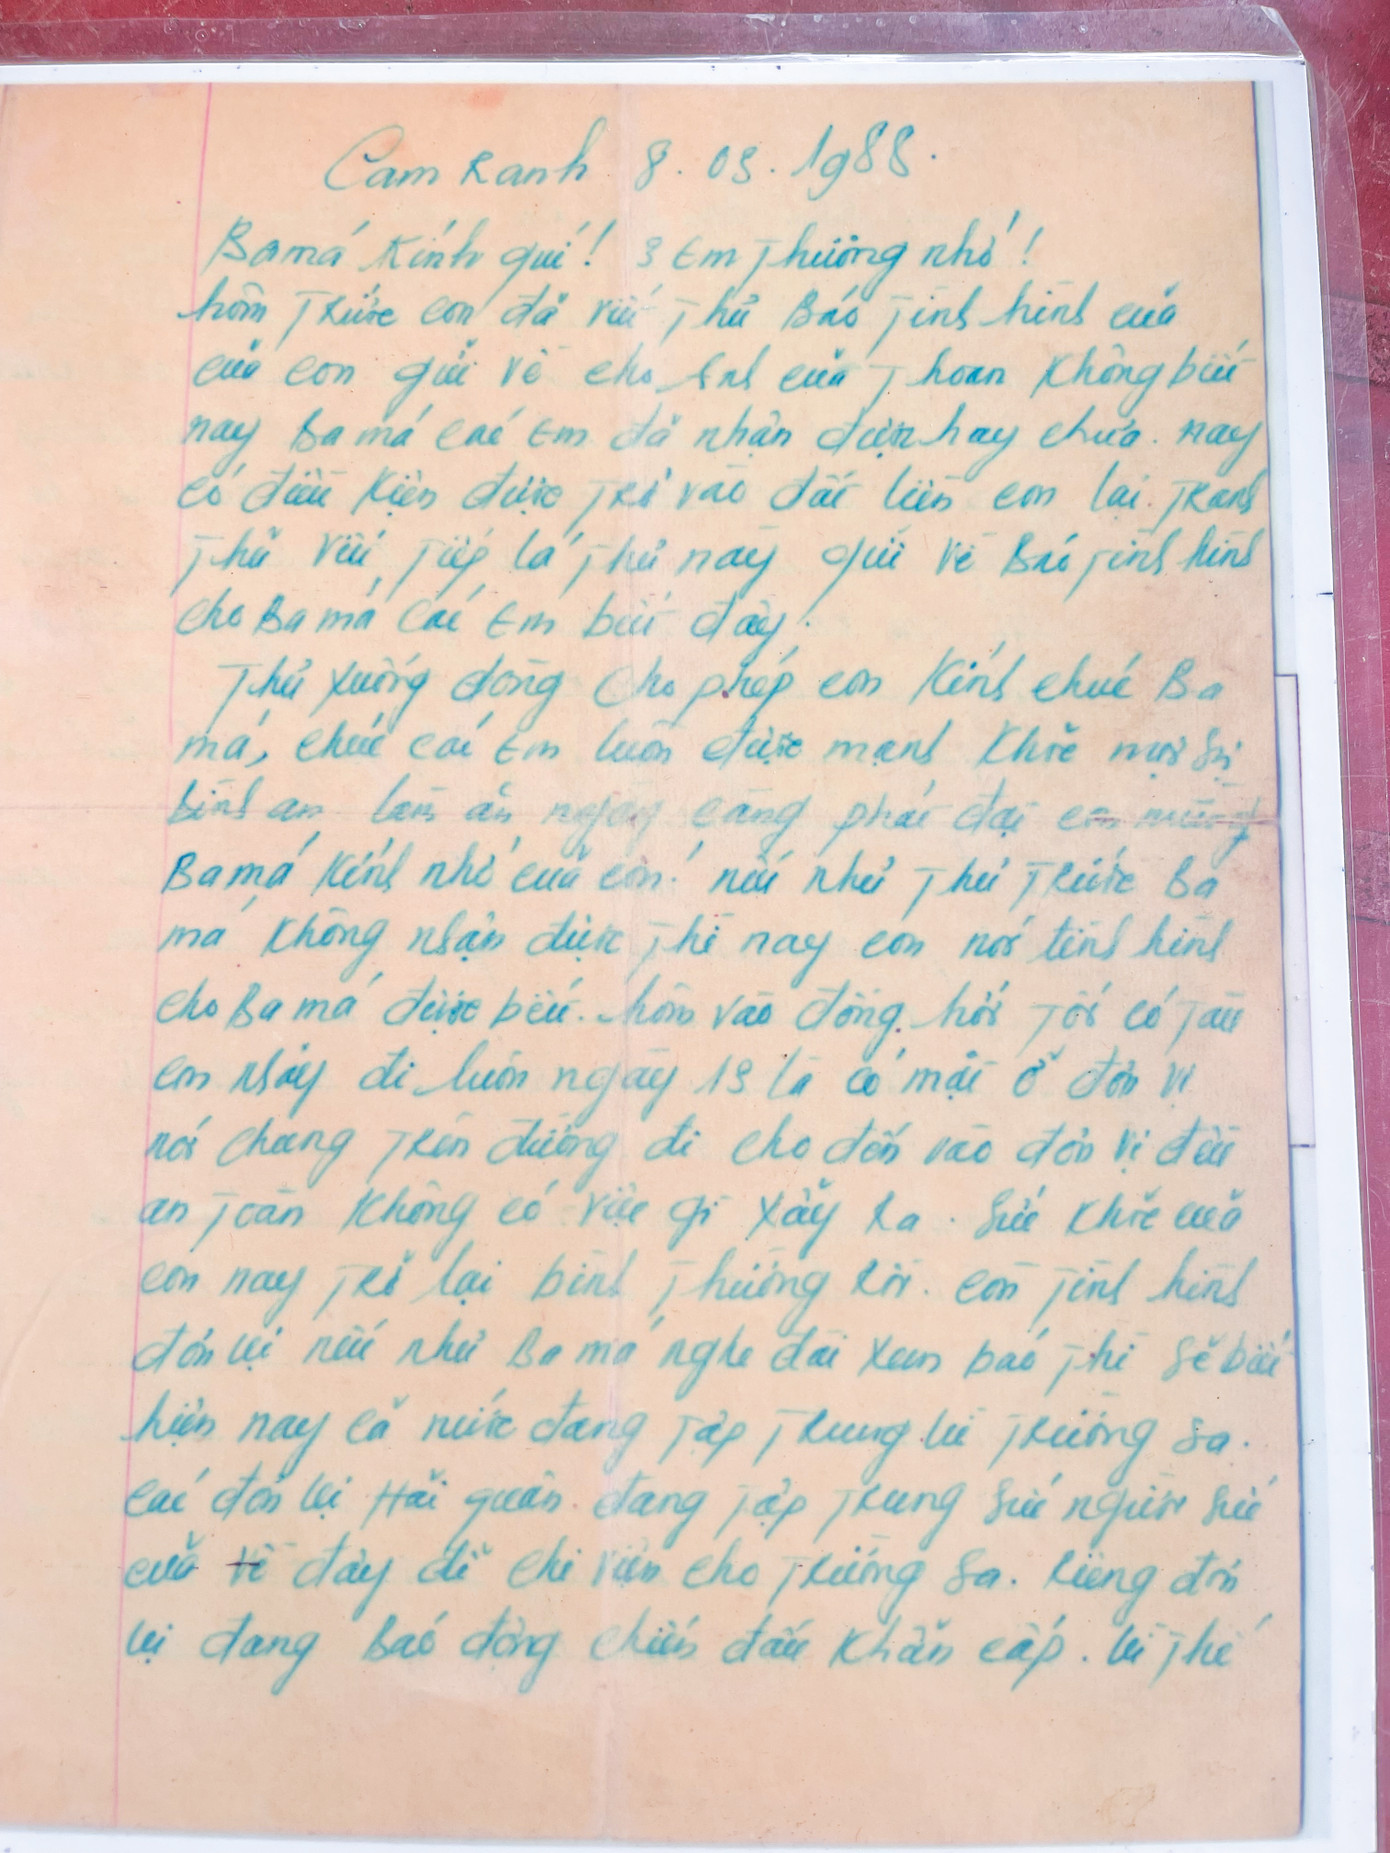 Cam Ranh 8.03.1988.
Ba má kính quí! 3 Em Thương nhớ!
hôm Trước con đã viết Thư Báo Tình hình của
của con gửi về cho Anh của Thoan không biết
nay Ba má các Em đã nhận được hay chưa. nay
có điều kiện được Trở vào đất liền con lại Tranh
Thủ viết Tiếp lá Thư này gửi về Báo Tình hình
cho Ba má các Em biết đây.
Thư xuống dòng cho phép con kính chúc Ba
má, chúc các Em luôn được mạnh khỏe mọi sự
bình an làm ăn ngày càng phát đạt con mừng
Ba má kính nhớ của con! nếu như Thư Trước Ba
má không nhận được Thì nay con nói tình hình
cho Ba má được biết. hôm vào đồng hới Tối có Tàu
con nhảy đi luôn ngày 13 là có mặt ở đơn vị
nói chung Trên đường đi cho đến vào đơn vị đều
an Toàn không có việc gì xảy Ra. sức khỏe của
con nay Trở lại bình Thường Rồi. còn Tình hình
đơn vị nếu như Ba má nghe đài xem báo Thì sẽ biết
hiện nay cả nước đang Tập Trung vì Trường Sa.
các đơn vị Hải quân đang Tập Trung sức người sức
của về đây để chi viện cho Trường Sa. Riêng đơn
vị đang Báo động chiến đấu khẩn cấp. vì Thế